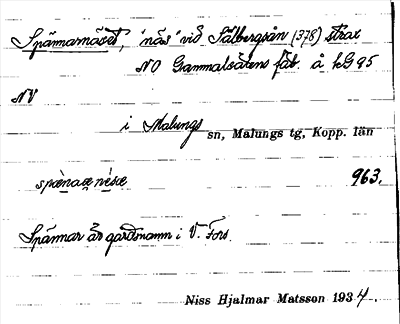 Spännarnäset, "näs" vid Sälbergsån (378) strax
NO Gammalsätens fäb. å kG 95
NV
i Malungs sn, Malungs tg, Kopp. län
963.
Spännar är gårdsnamn i V. Fors.
Niss Hjalmar Matsson 1934.